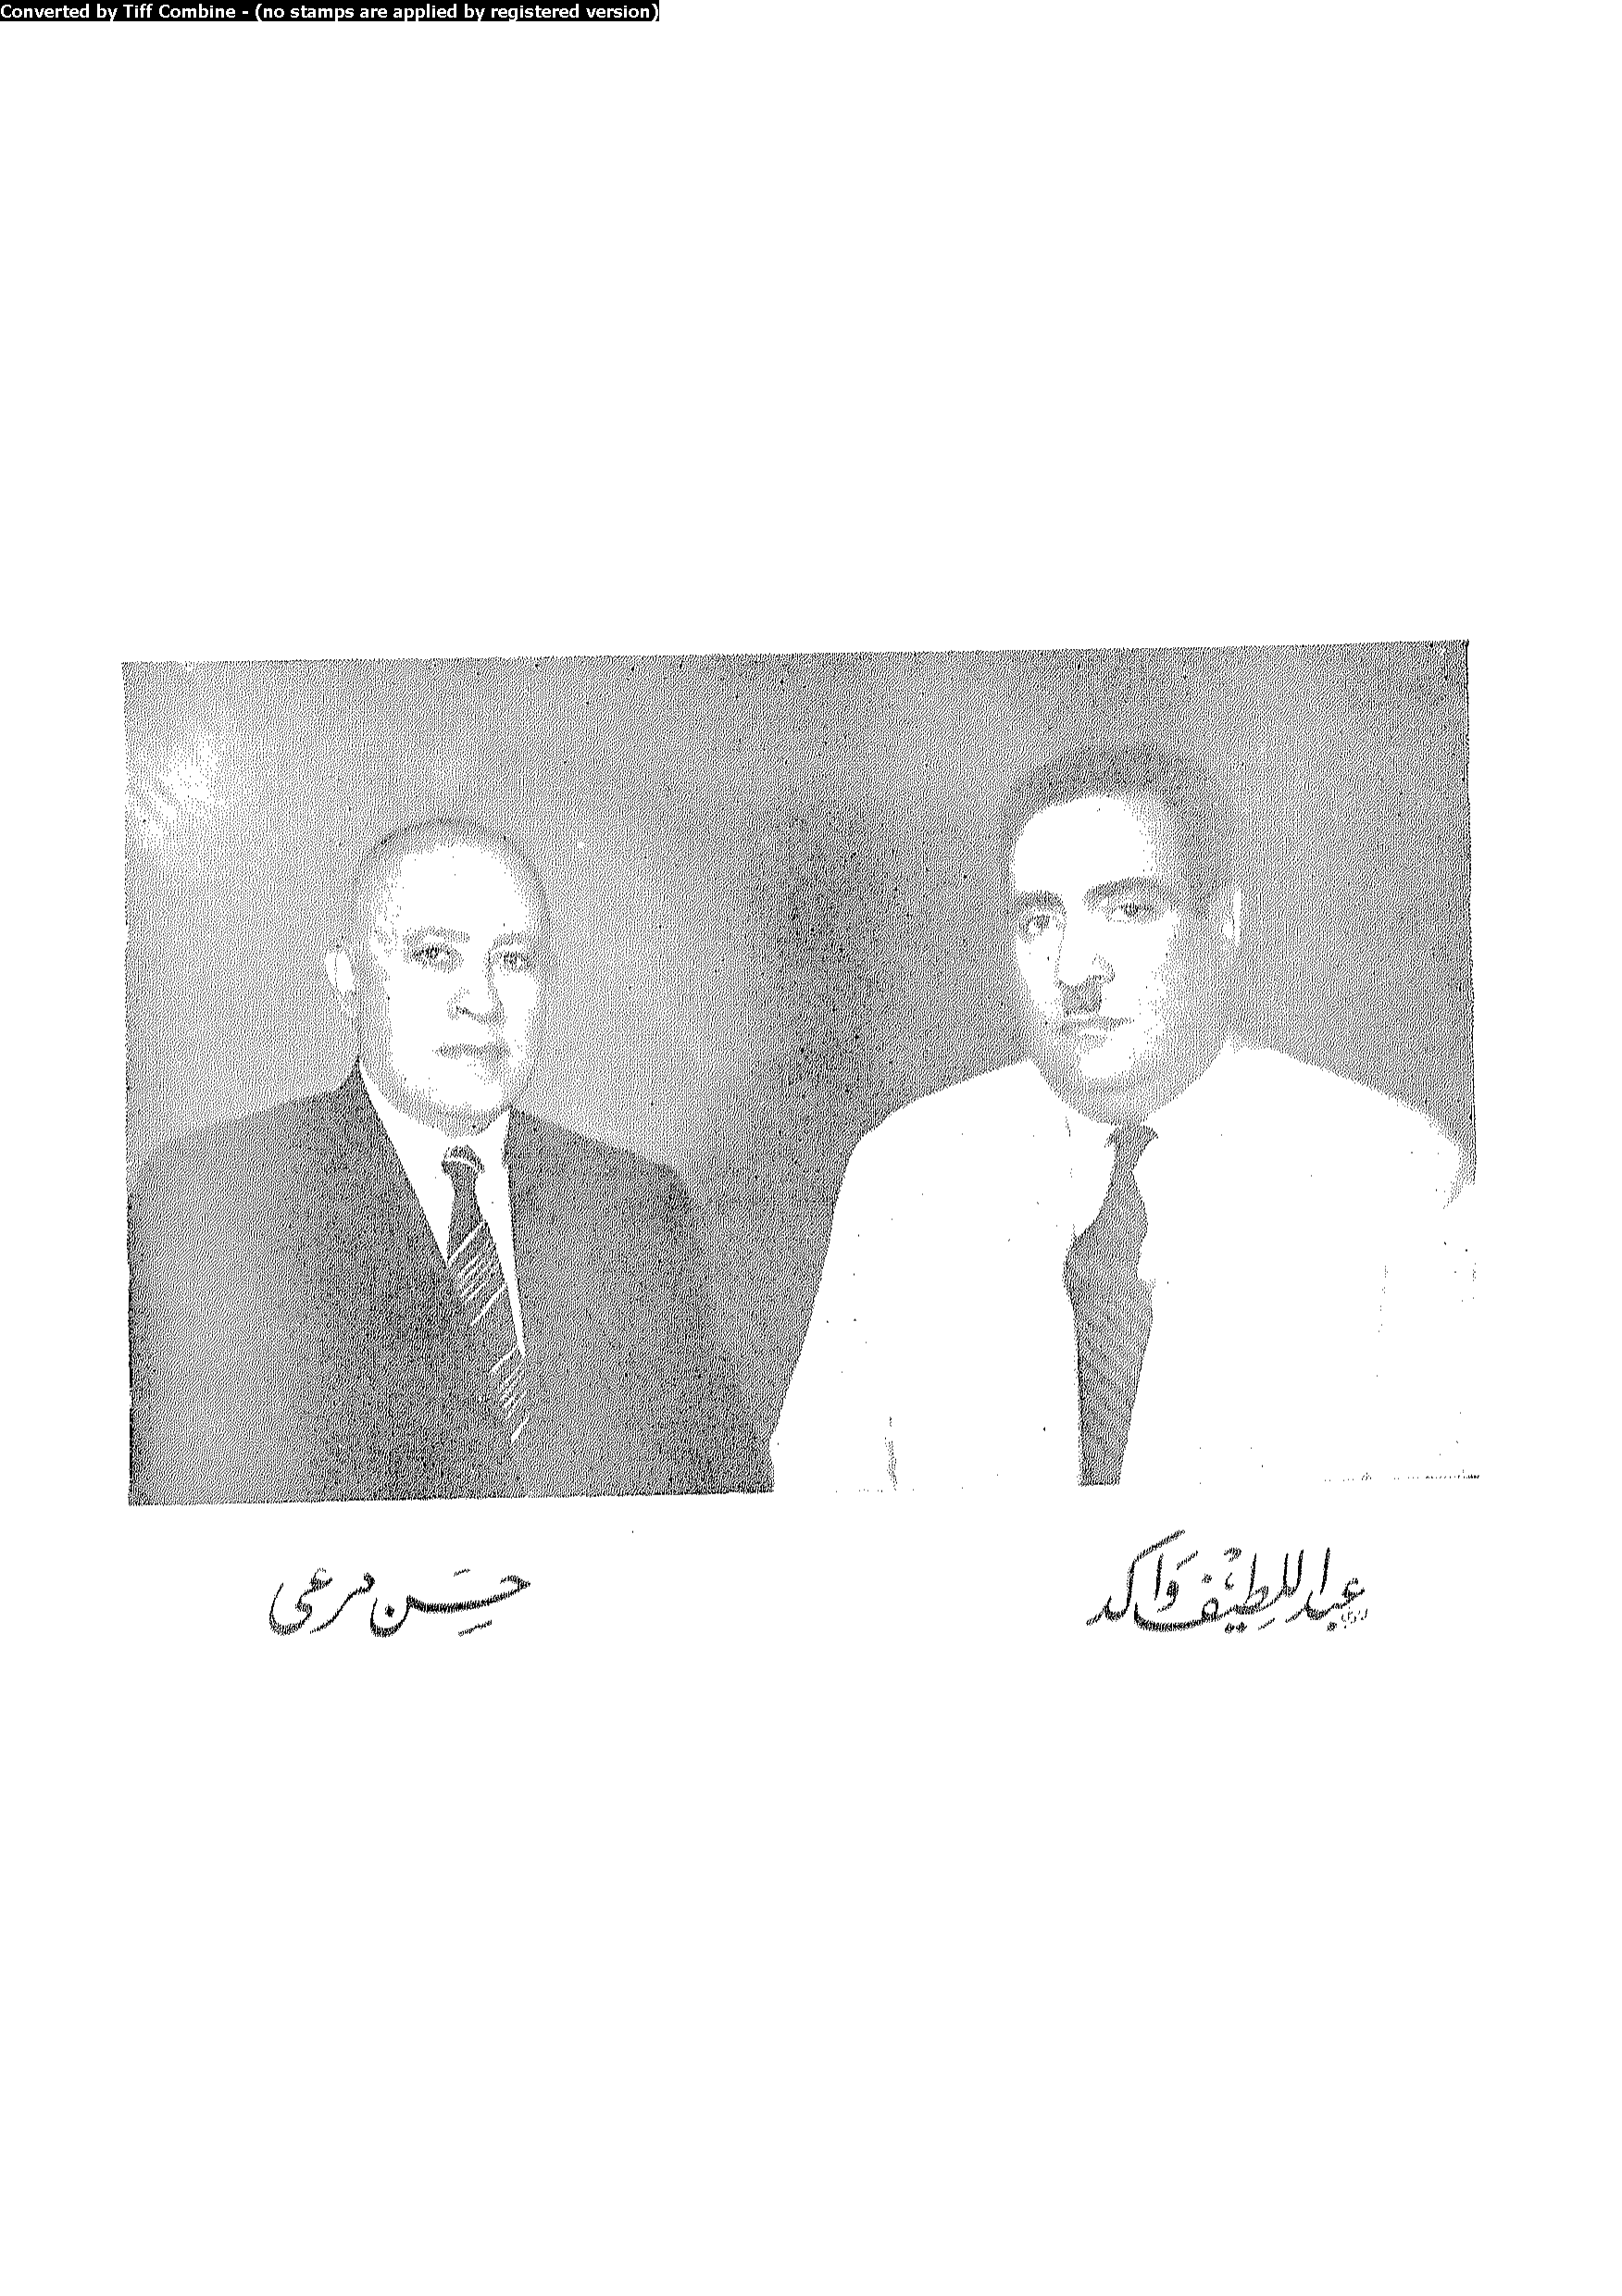 Converted by Tiff Combine - (no stamps are applied by registered version)
عبد اللطيف واكد
حسن مرعى